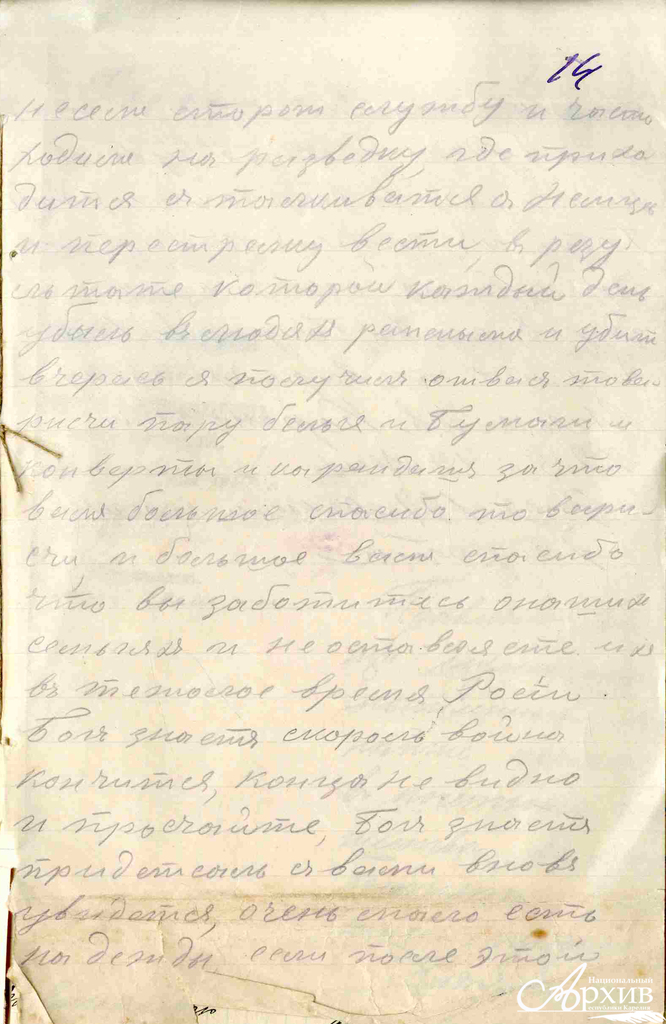 14
несем сторож службу и часто
ходим на разведку, где прихо
дится сталкиватся с Немцам
и перестрелку вести, в резу
льтате которой каждый день
убыль в людях раненыма и убит
вчерась я получил от вас това-
рисчи пару белья и Бумаги и
конверты и карандаш за что
вам большое спасибо товари-
счи и большое вам спасибо
что вы заботитесь о наших
семьях и не оставляете их
в тежолое время,
Бог знает скороль война
кончится, конца не видно
и просчайте, Бог знает
придетсаль с вами вновь
увидется, очень мало есть
надежды, если после этой
Национальный
Архив
Республики Карелия